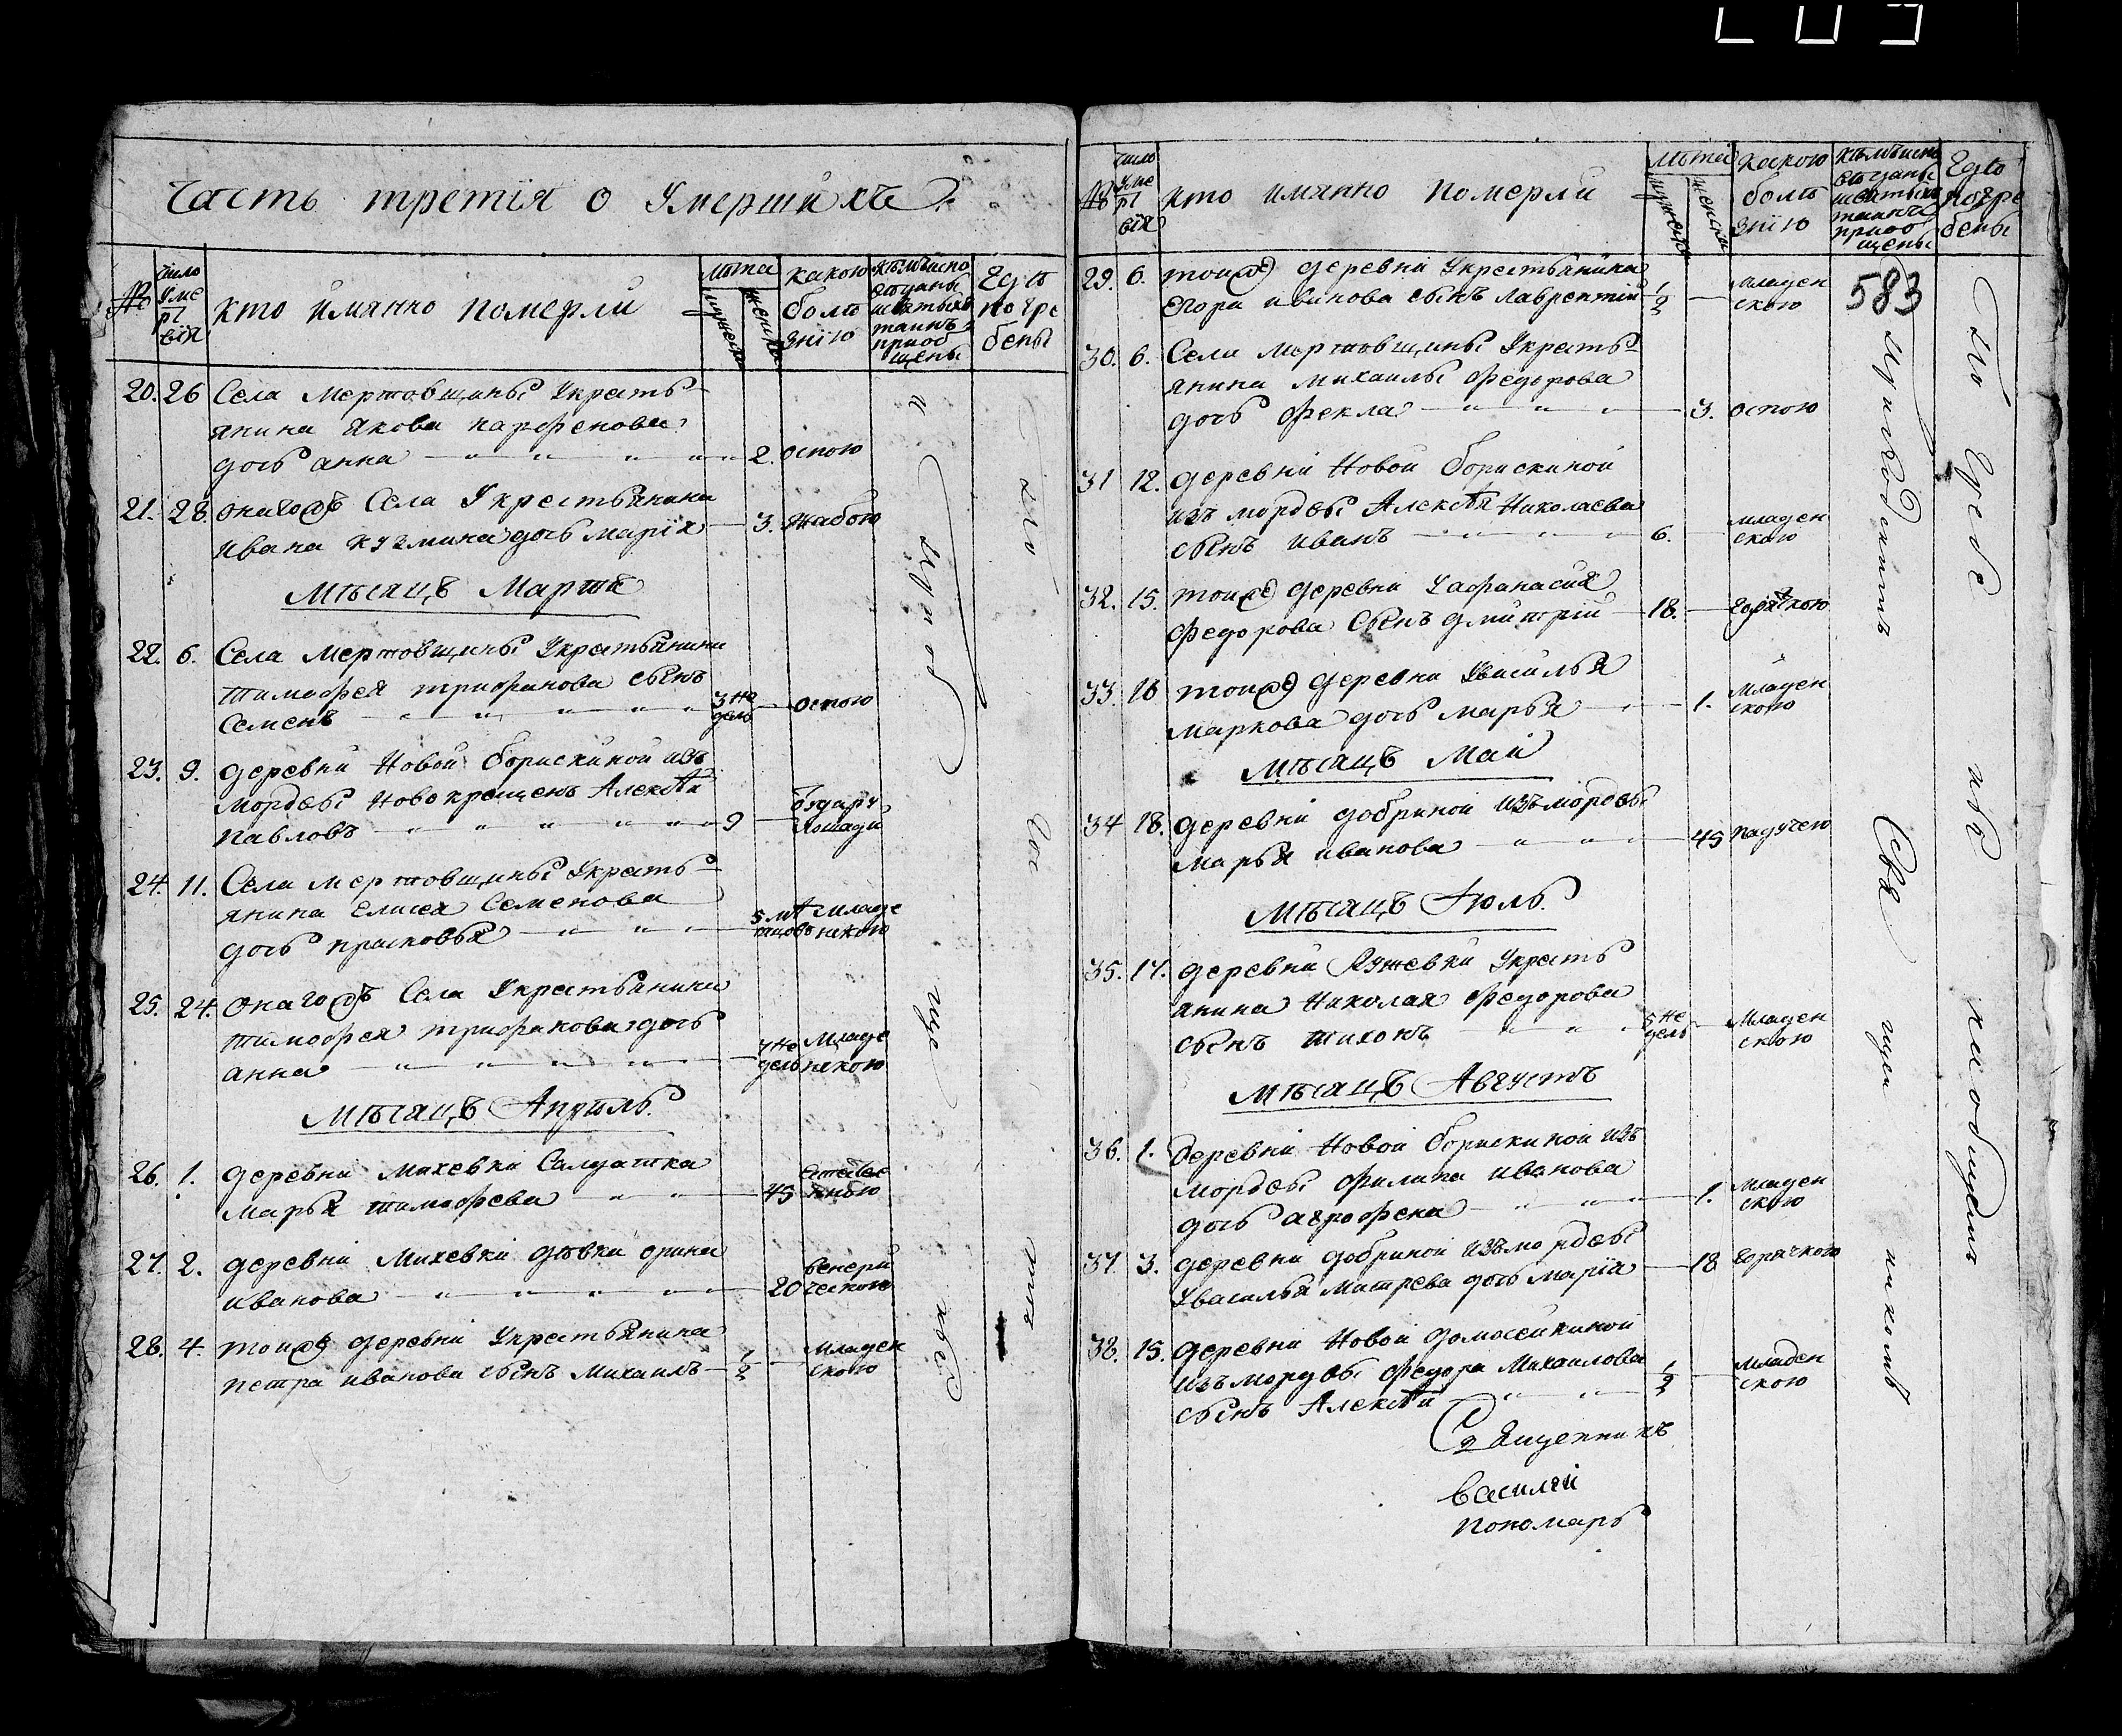 Часть третїя о Умершихъ.
№
число умертвїя
кто имянно померли
лѣта
мужеска
женска
какою болѣзнїю
кѣмъ исповѣданы и святыхъ таинъ приобщены
Где погребены
20. 26 Села Мертовщины Укресть-
янина Якова парфенова
дочь анна 2. оспою
21. 28. онагожъ Села Укрестьянина
Ивана кузмина дочь марїя 3. жабою
Мѣсяцъ Мартъ
22. 6. Села Мертовщины Укрестьянина
тимофея трифанова сынъ
Семенъ 3 недель оспою
23. 9. деревни Новой борискиной изъ
мордвы новокрещенъ Алексѣй
павловъ 9 ѿудару лошади
24. 11. Села мертовщины Укресть-
янина елисея Семенова
дочь прасковья 5 мѣсяцовъ младенскою
25. 24. онагожъ Села Укрестьянина
тимофея трифанова дочь
анна недель младенскою
Мѣсяцъ Апрѣль.
26. 1. деревни михевки Салдатка
марья тимофева 45
27. 2. деревни михевки девка орина
иванова 20 венерическою
28. 4. тоижъ деревни Укрестьянина
петра иванова сынъ михаилъ 1/2 младенскою
№
число умертвїя
кто имянно померли
лѣта
мужеска
женска
какою болѣзнїю
кѣмъ исповѣданы и святыхъ таинъ приобщены
Где погребены
583
29. 6. тоижъ деревни Укрестьянина
егора иванова сынъ лаврентий 1/2 младенскою
30. 6. Села мертовщины Укресть-
янина михаилы федорова
дочь фекла 3. оспою
31 12. деревни Новой борискиной
изъ мордвы Алексѣя Николаева
сынъ иванъ 6. младенскою
32. 15. тоижъ деревни Уафанасия
федорова Сынъ дмитрїй 18. горячкою
33. 16 тоижъ деревни Увасилья
маркова дочь марья 1. младенскою
Мѣсяцъ Май
34 18. деревни добриной изъ мордвы
марья иванова 45 падучею
Мѣсяцъ Іюль.
35. 17. деревни Ружевки Укресть
янина Николая федорова
сынъ тихонъ 5 недель младенскою
Мѣсяцъ Августъ
36. 1. деревни Новой борискиной изъ
мордвы филипа иванова
дочь аграфена 1. младенскою
37. 3. деревни добриной изъ мордвы
Увасилья митрева дочь марїя 18 горячкою
38. 15. деревни Новой домосейкиной
изъ мордвы федора михаилова
сынъ Алексѣй 1/2 младенскою
Священникъ
василий
пономарь